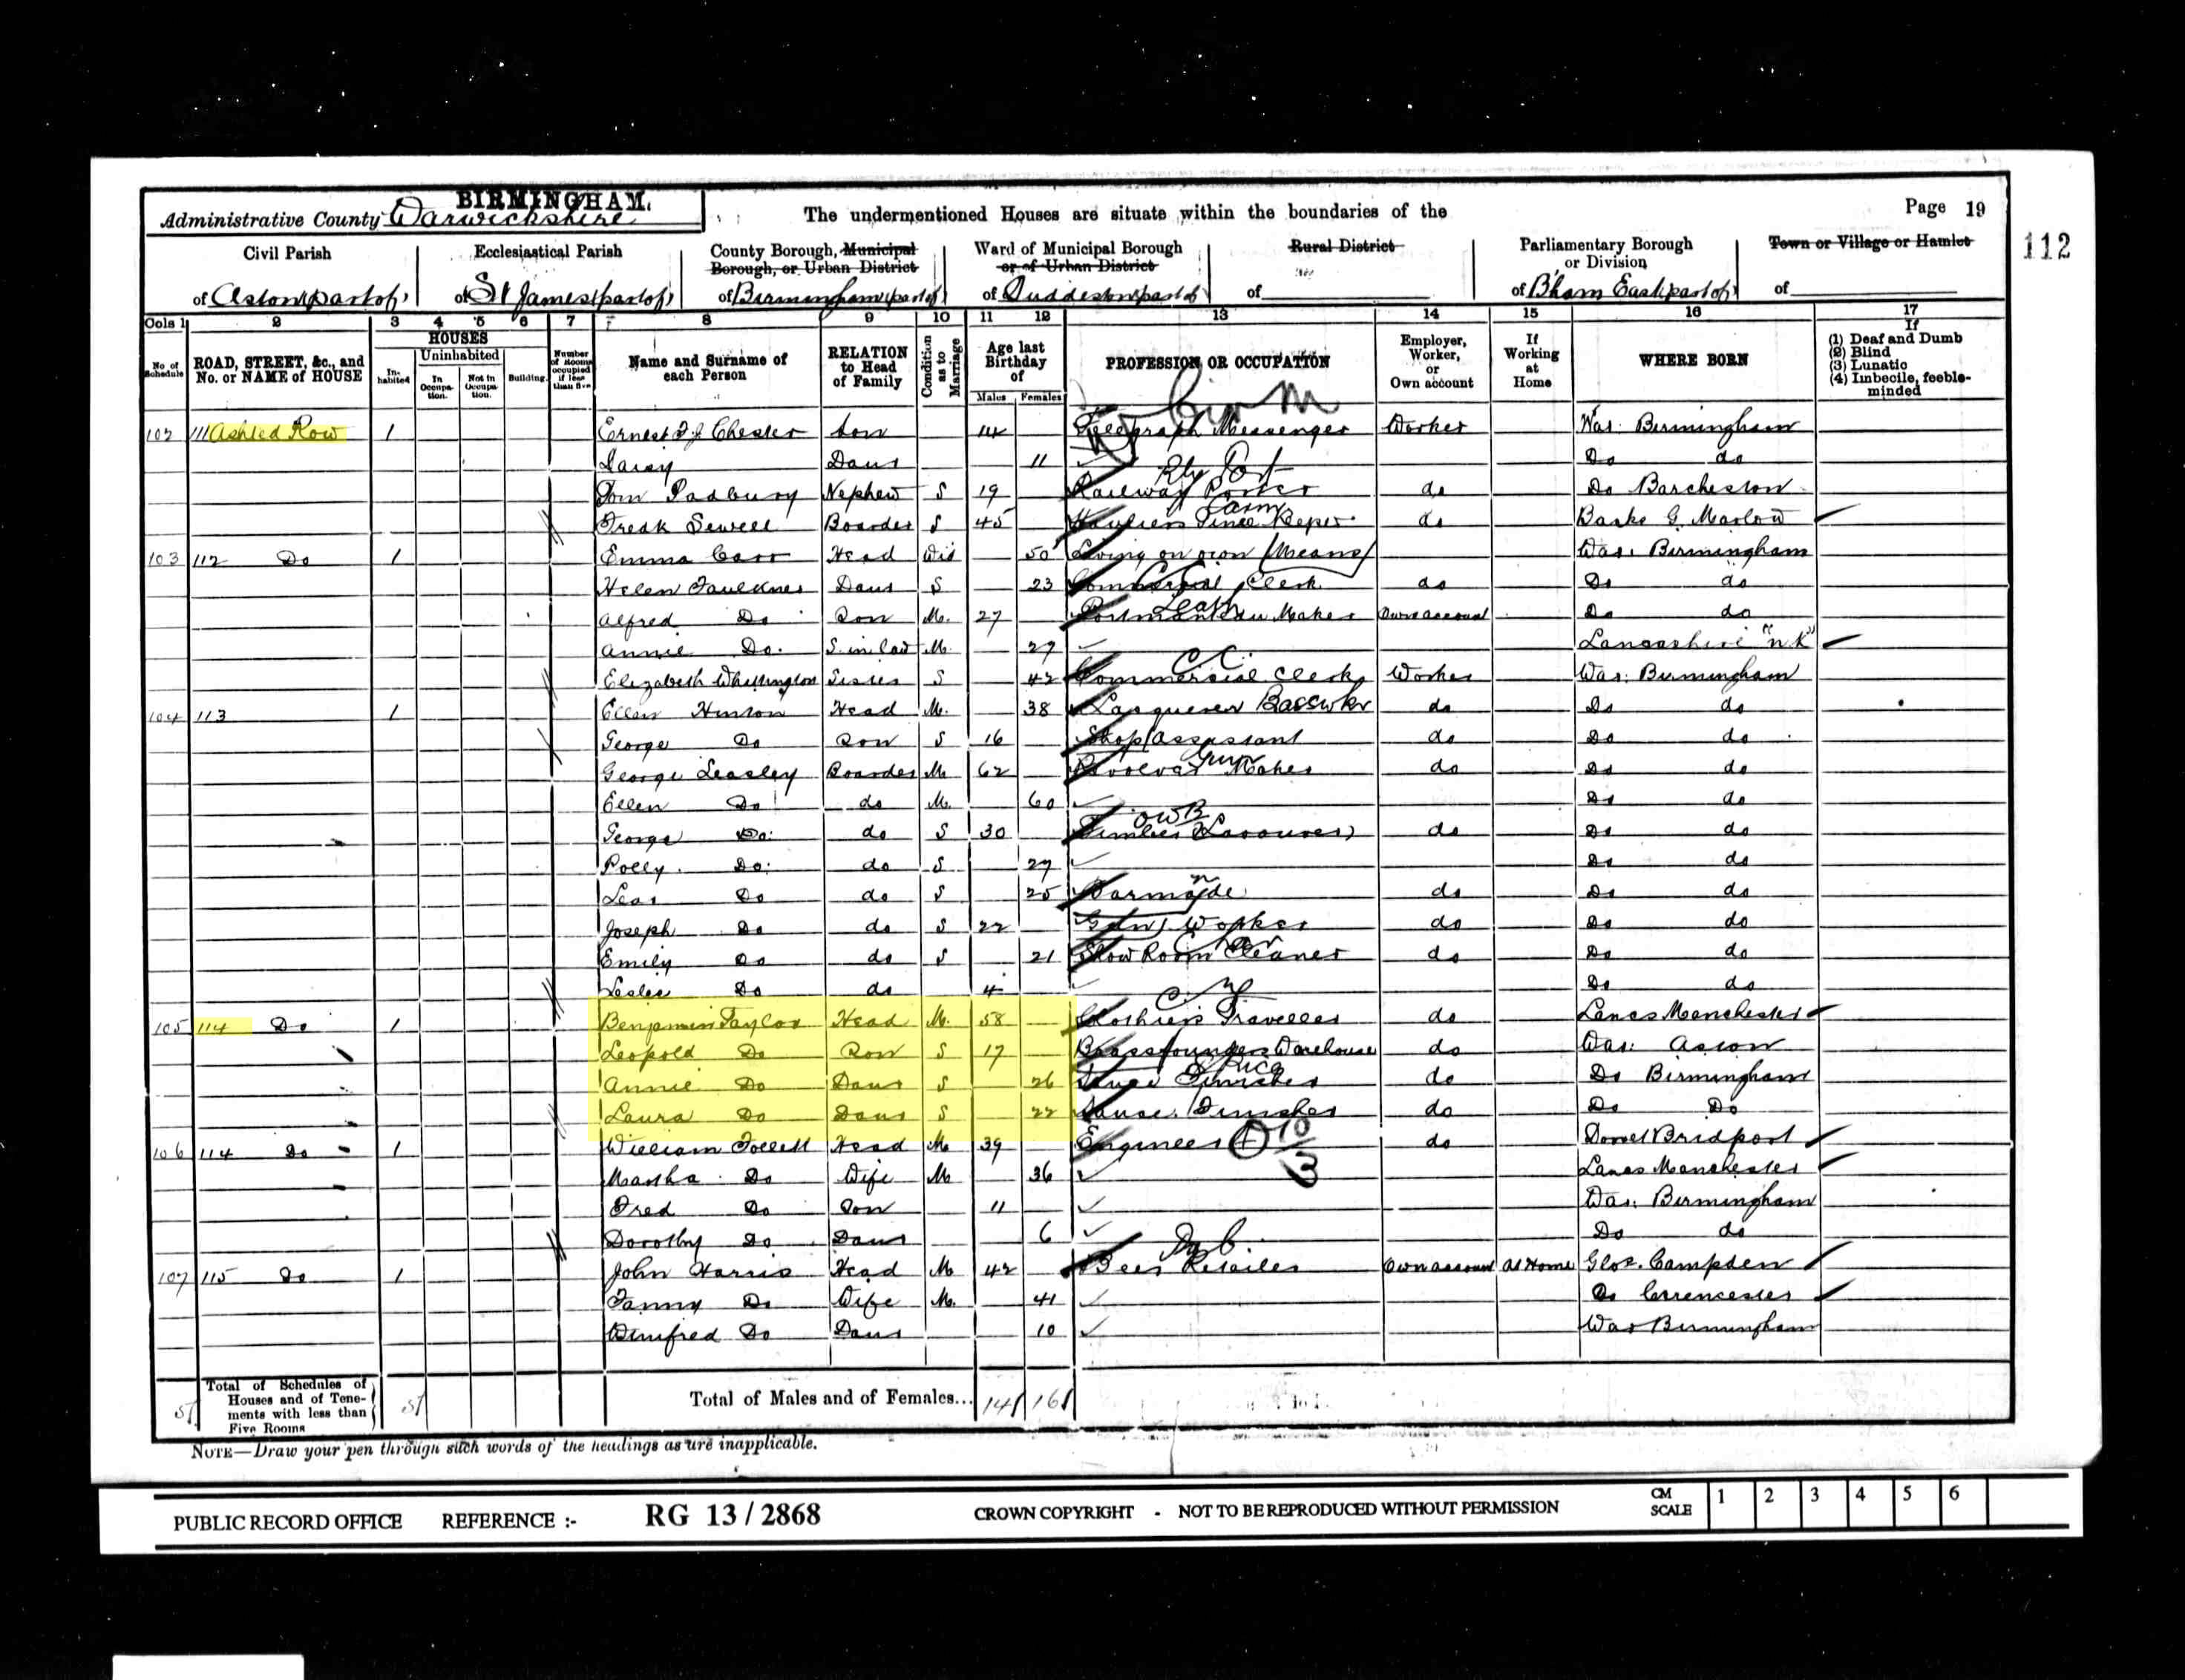 BIRMINGHAM.
Administrative County Warwickshire
The undermentioned Houses are situate within the boundaries of the
Page 19
112
Civil Parish
of Aston (part of)
Ecclesiastical Parish
of St James (part of)
County Borough, Municipal
Borough, or Urban District
of Birmingham (part of)
Ward of Municipal Borough
or of Urban District
of Duddeston (part of
Rural District
of
Parliamentary Borough
or Division
of B'ham East (part of)
Town or Village or Hamlet
of
Cols 1 2 3 4 5 6 7 8 9 10 11 12 13 14 15 16 17
No of Schedule
ROAD, STREET, &c., and No. or NAME of HOUSE
HOUSES
Inhabited
Uninhabited
In Occupation.
Not in Occupation.
Building.
Number of Rooms occupied if less than five
Name and Surname of each Person
RELATION to Head of Family
Condition as to Marriage
Age last Birthday of
Males Females
PROFESSION OR OCCUPATION
Employer, Worker, or Own account
If Working at Home
WHERE BORN
If
(1) Deaf and Dumb
(2) Blind
(3) Lunatic
(4) Imbecile, feeble-minded
102 111 Ashted Row 1 Ernest F J Chester Son 14 Telegraph Messenger Worker War. Birmingham
Daisy Daur 11 Do do
Tom Padbury Nephew S 19 Railway Porter do Do Barcheston
Sewell Boarder S 45 do Bucks G. Marlow
103 112 Do 1 Emma Carr Head Wid 50 Living on own Means War. Birmingham
Helen Faulkner Daur S 23 Commercial Clerk do Do do
Alfred Do Son M. 27 Portmanteau Maker Own account Do do
Annie Do. M. 27 Lancashire "n.K"
Elizabeth Whittington Sister S 42 Commercial Clerk Worker War. Birmingham
104 113 1 Ellen Hinson Head M. 38 Lacquerer do Do do
George Do Son S 16 Shop Assistant do Do do
George Leasley Boarder M. 62 Revolver Maker do Do do
Ellen Do do M. 60 Do do
George Do. do S 30 Timber Labourer do Do do
Polly. Do. do S 27 Do do
Do do S 25 do Do do
Joseph Do do S 22 Gun Worker do Do do
Emily Do do S 21 Show Room Cleaner do Do do
Leslie Do do 4 Do do
105 114 Do 1 Benjamin Taylor Head M. 58 Clothiers Traveller do Lancs Manchester
Leopold Do Son S 17 Brassfounders Warehouse do War. Aston
Annie Do Daur S 26 do Do Birmingham
Laura Do Daur S 22 do Do Do
106 114 Do 1 William Follett Head M 39 Engineer do Dorset Bridport
Martha Do Wife M 36 Lancs Manchester
Fred Do Son 11 War. Birmingham
Dorothy Do Daur 6 Do do
107 115 Do 1 John Harris Head M 42 Beer Retailer Own account At Home Glos. Campden
Fanny Do Wife M. 41 Do Cirencester
Winifred Do Daur 10 War Birmingham
5 Total of Schedules of Houses and of Tenements with less than Five Rooms 5 Total of Males and of Females... 14 16
NOTE—Draw your pen through such words of the headings as are inapplicable.
PUBLIC RECORD OFFICE REFERENCE :- RG 13 / 2868 CROWN COPYRIGHT - NOT TO BE REPRODUCED WITHOUT PERMISSION CM SCALE 1 2 3 4 5 6